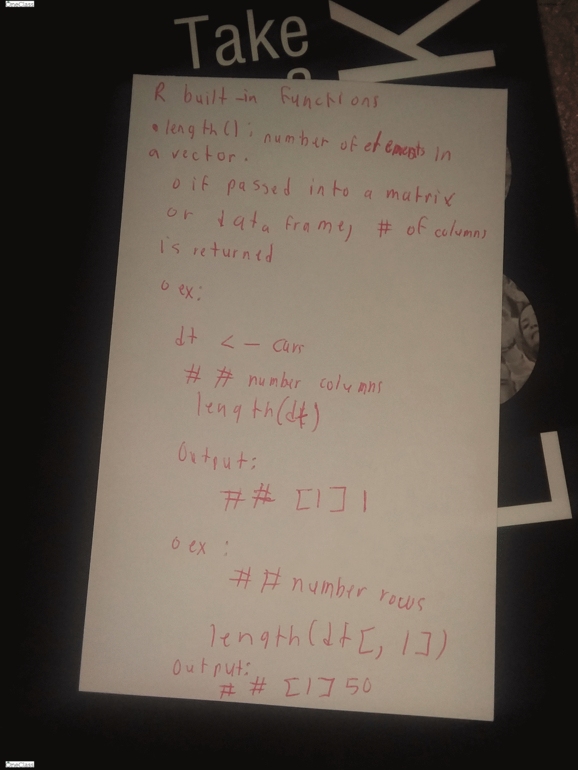 OneClass
Take
K
R built-in functions
• length(): number of elements in
a vector.
o if passed into a matrix
or data frame, # of columns
is returned
o ex:
dt <- cars
# # number columns
length(dt)
Output:
# # [1] 1
o ex:
# # number rows
length(dt[, 1])
Output:
# # [1] 50
L
OneClass